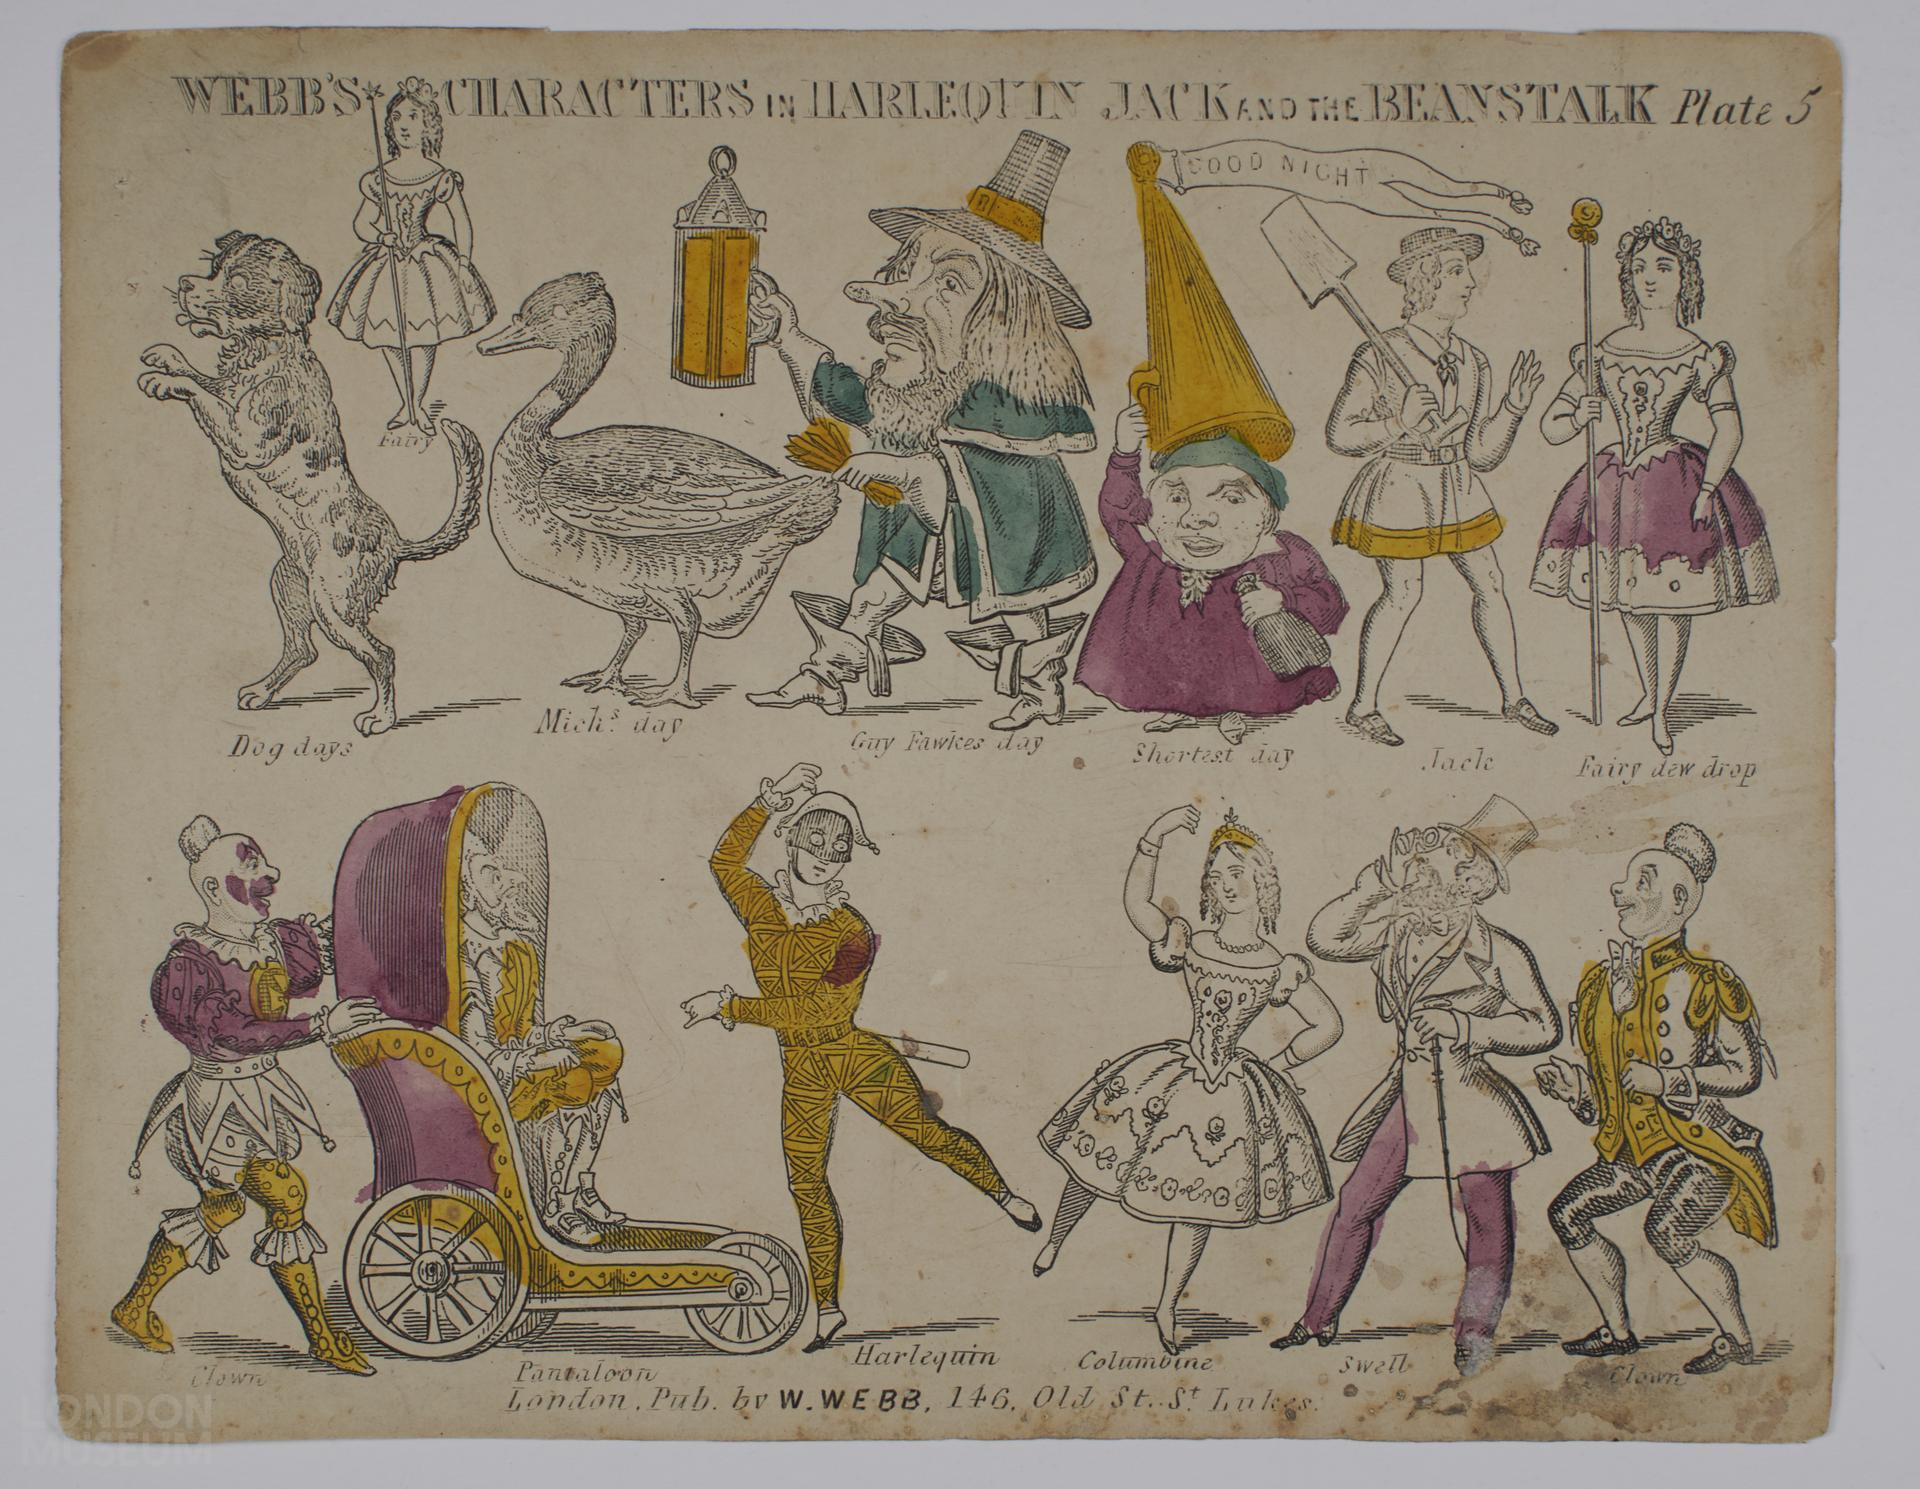 WEBB'S CHARACTERS IN HARLEQUIN JACK AND THE BEANSTALK Plate 5
GOOD NIGHT
Fairy
Dog days
Mich.s day
Guy Fawkes day
Shortest day
Jack
Fairy dew drop
Clown
Pantaloon
Harlequin
Columbine
Swell
Clown
London, Pub. by W. WEBB, 146, Old St. St Lukes.
LONDON
MUSEUM